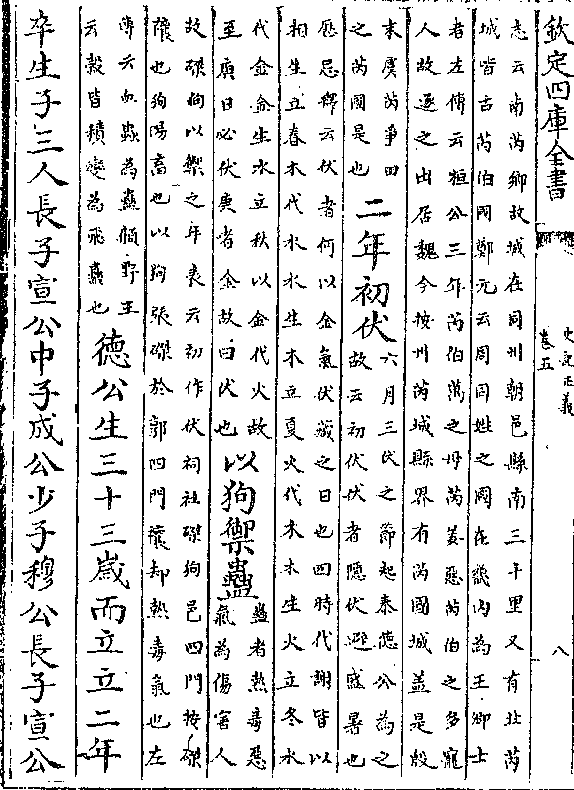 欽定四庫全書
史記正義
卷五
八
志云南芮鄉故城在同州朝邑縣南三十里又有北芮
城皆古芮伯國鄭元云周同姓之國在畿内為王卿士
者左傳云桓公三年芮伯萬之母芮姜惡芮伯之多寵
人故逐之出居魏今按州芮城縣界有芮國城蓋是殷
末虞芮爭田
之芮國是也
二年初伏
六月三伏之節起秦德公為之
故云初伏伏者隱伏避盛暑也
厯忌釋云伏者何以金氣伏藏之日也四時代謝皆以
相生立春木代水水生木立夏火代木木生火立冬水
代金金生水立秋以金代火故
至庚日必伏庚者金故曰伏也
以狗禦蠱
蠱者熱毒惡
氣為傷害人
故磔狗以禦之年表云初作伏祠社磔狗邑四門按磔
禳也狗陽畜也以狗張磔於郭四門禳却熱毒氣也左
傳云血蟲為蠱顧野王
云穀皆積變為飛蠱也
德公生三十三歲而立立二年
卒生子三人長子宣公中子成公少子穆公長子宣公